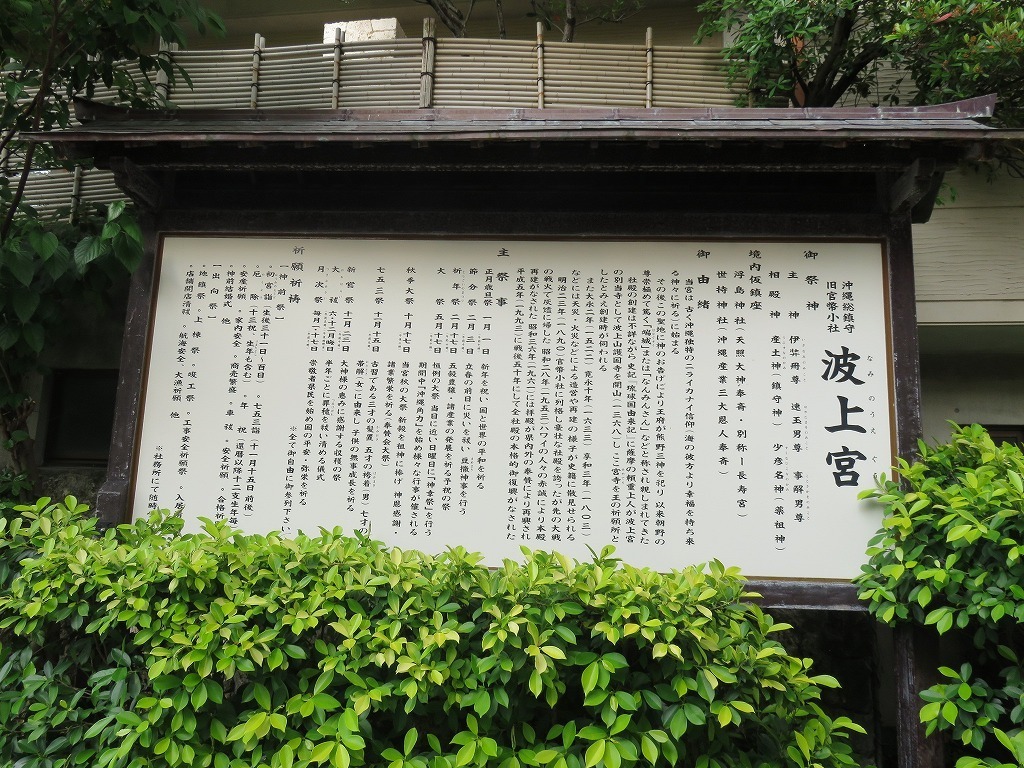 沖縄総鎮守
旧官幣小社
波上宮
なみのうえぐう
御祭神
主神 伊弉冊尊 速玉男尊 事解男尊
相殿神 産土神(鎮守神) 少彦名神(薬祖神)
境内仮鎮座
浮島神社(天照大神奉斎・別称－長寿宮)
世持神社(沖縄産業三大恩人奉斎)
御由緒
当宮は、古く沖縄独特のニライカナイ信仰(海の彼方より幸福を持ち来
る神々に祈る)に始まる
その後この聖地に神のお告げにより王府が熊野三神を祀り 以来朝野の
尊崇極めて篤く「端城」または「なみんさん」などと称され親しまれてきた
社殿の創建は不詳ながら史記『琉球国由来記』に薩摩の頼重上人が波上宮
の別当寺として波上山護国寺を開山(一三六八)し、ここ宮寺を王の祈願所と
したとみえ創建時が伺われる
また大永二年(一五二二) 寛永十年(一六三三) 享和三年(一八〇三)
などには天災・火災などによる造営や再建の様子が史籍に散見せられる
明治二三年(一八九〇)官幣小社に列格し豪壮な社殿を誇ったが先の大戦
の戦火で灰燼に帰した 昭和二八年(一九五三)ハワイの人々の赤誠により本殿
再建がなされた 昭和三六年(一九六一)には拝殿が県内外の奉賛により再興され
平成五年(一九九三)に戦後五十年にして全社殿の本格的御復興がなされた
主祭事
正月歳旦祭 一月一日 新年を祝い、国と世界の平和を祈る
節分祭 二月三日 立春の前日に災いを祓い、豆撒神事を行う
祈年祭 二月十七日 五穀豊穣・諸産業の発展を祈る予祝の祭
大祭 五月十七日 恒例の大祭 当日に近い日曜日に「神幸祭」を行う
期間中「沖縄角力」を始め様々な行事が催される
秋季大祭 十月十七日 当宮秋の大祭 新穀を祖神に捧げ 神恩感謝・
諸業繁栄を祈る(奉賛会大祭)
七五三祭 十月十五日 古習である三才の髪置、五才の袴着(男)、七才の
帯解(女)に由来し 子供の無事成長を祈る
新嘗祭 十一月二三日 大神様の恵みに感謝する収穫の祭
大祓 六・十二月晦日 半年ごとに罪穢を祓い清める儀式
月次祭 毎月一・十七日 崇敬者県民を始め国の平安・弥栄を祈る
※全て御自由に御参列下さい
祈願祈祷
一、神前祭
。初宮詣(生後三十一日～百日) 。七五三詣(十一月十五日前後)
。厄除(十三祝・生年も含む) 。年祝(還暦以降十二支生年毎
。安産祈願 。家内安全 。商売繁盛 。車祓 。安全祈願 。合格祈
。神前結婚式 他
一、出向祭
。地鎮祭 。上棟祭 。竣工祭 。工事安全祈願祭 。入居
。店舗開店清祓 。航海安全・大漁祈願 他
※社務所にて随時